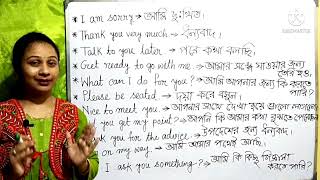 * I am sorry → আমি দুঃখিত।
Thank you very much → ধন্যবাদ।
* Talk to you later → পরে কথা বলছি,
Get ready to go with me → আমার সঙ্গে যাওয়ার জন্য
তৈরি হও,
* What can I do for you? → আমি আপনার জন্য কি করতে
পারি?
* Please be seated → দয়া করে বসুন।
Nice to meet you → আপনার সাথে দেখা হয়ে ভালো লাগলো
you get my point? → আপনি কি আমার কথা বুঝতে পেরেছেন
you for the advice → উপদেশের জন্য ধন্যবাদ।
on my way → আমি আমার পথেই আছি।
I ask you something? → আমি কি কিছু জিজ্ঞাসা
করতে পারি?